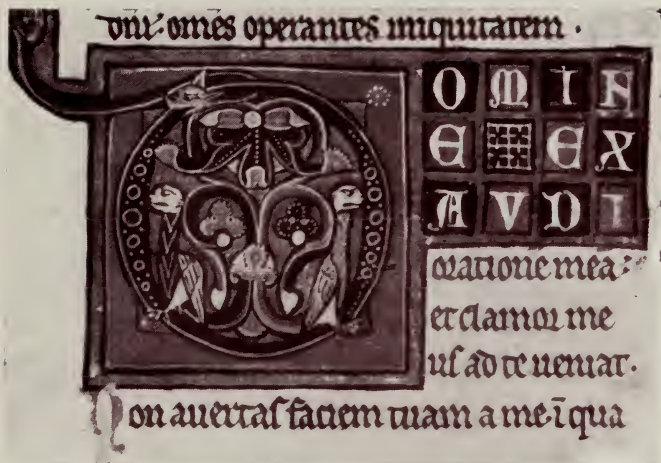 dnī. omēs operantes iniquitatem.
D OMIN
E EX
AUDI
oratione mea:
et clamor me
us ad te ueniat.
Non auertas faciem tuam a me. ī qua